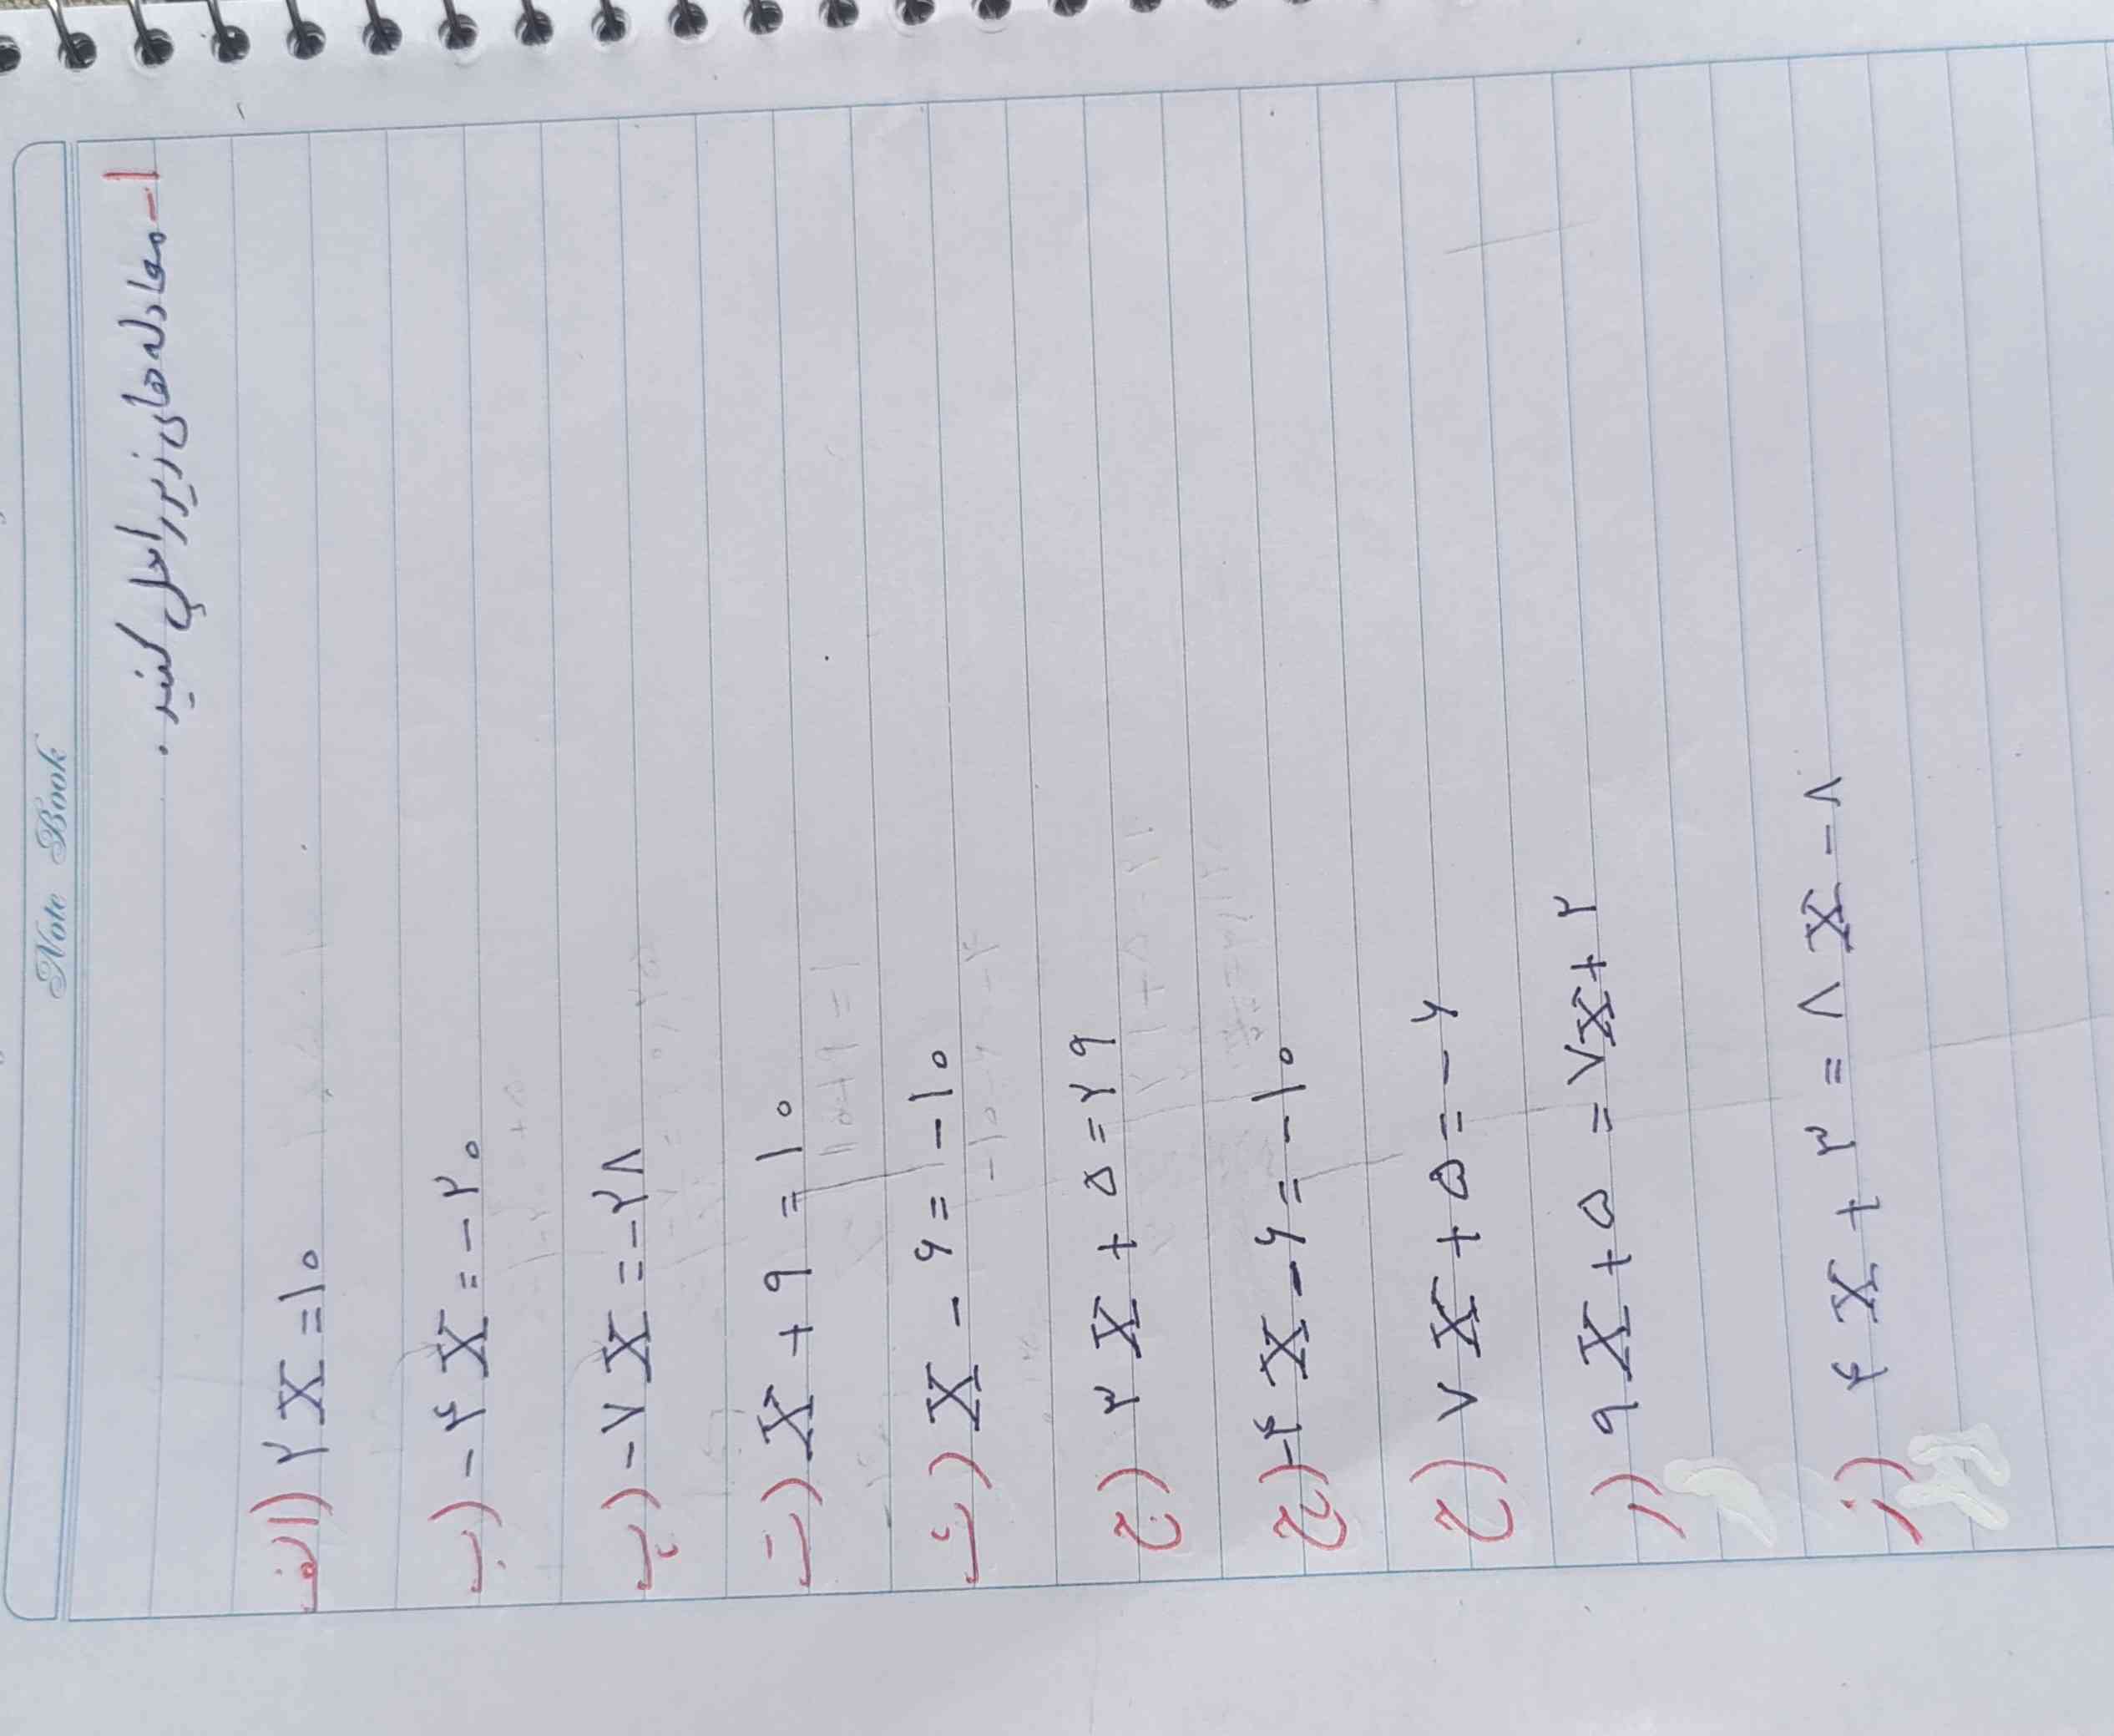 Note Book
۱- معادله های زیر را حل کنید.
الف) ۲X = ۱۰
ب) -۴X = -۲۰
پ) -۷X = -۲۸
ت) X + ۹ = ۱۰
ث) X - ۶ = -۱۰
ج) ۳X + ۵ = ۲۹
چ) -۴X - ۶ = -۱۰
ح) ۷X + ۵ = -۶
ر) ۹X + ۵ = ۷X + ۲
ز) ۴X + ۳ = ۸X - ۸